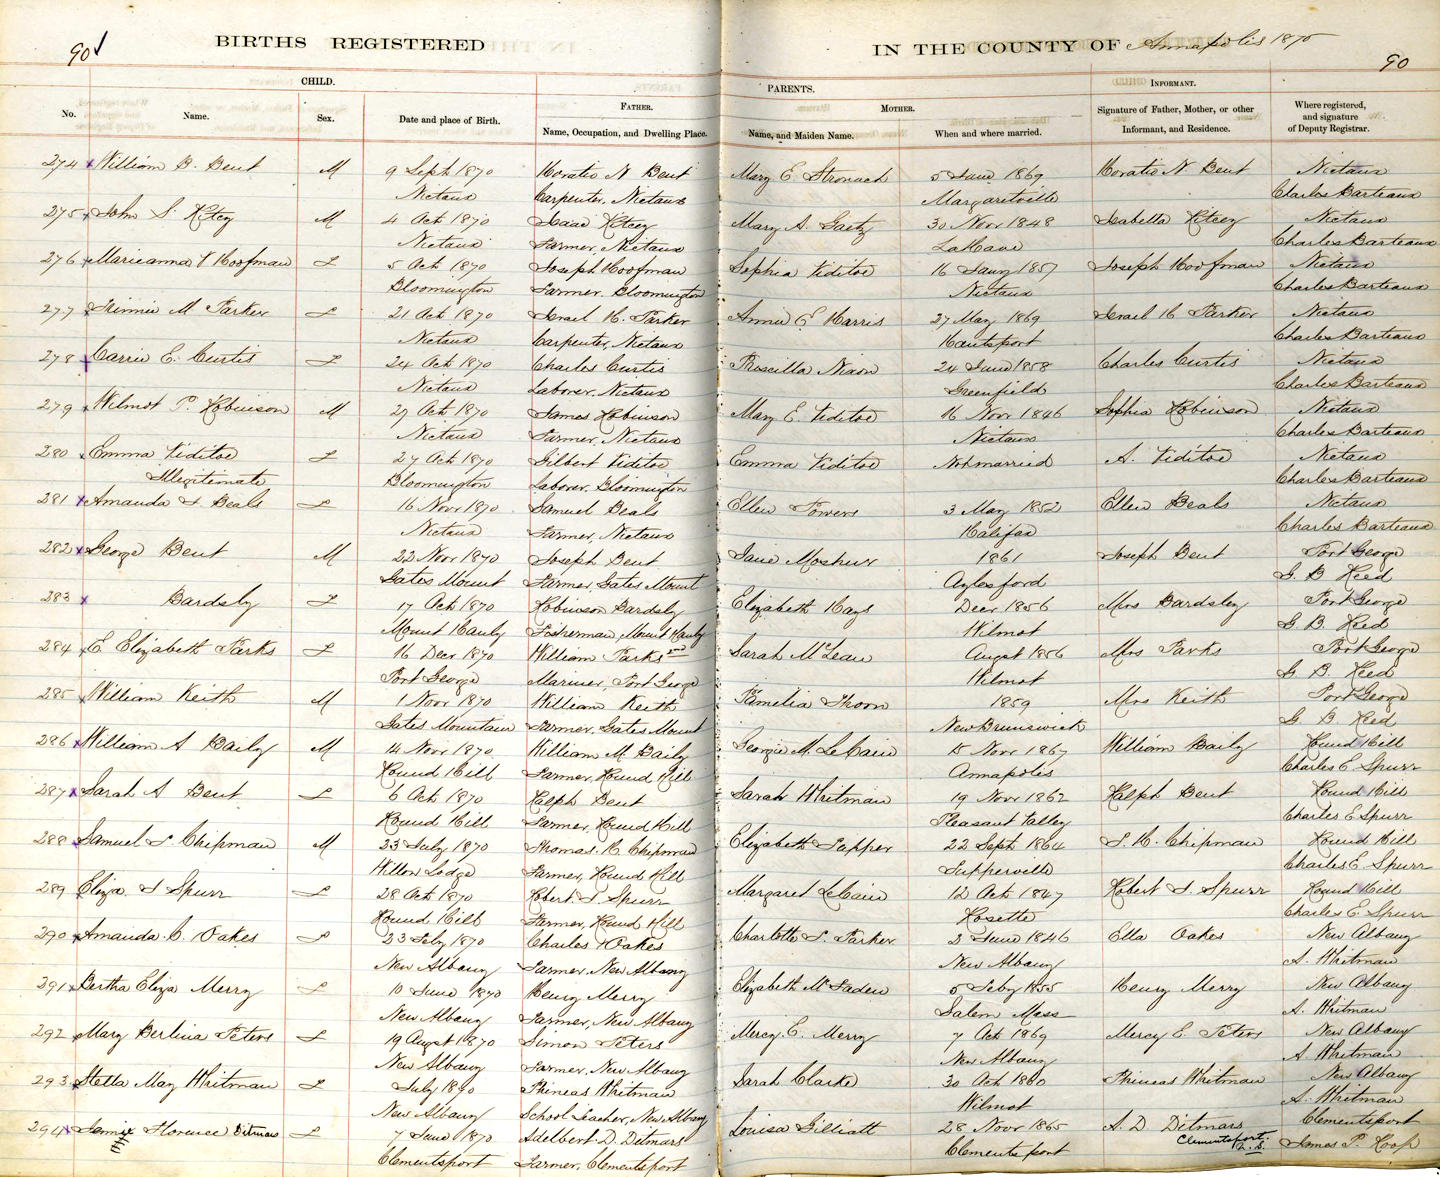 90
BIRTHS REGISTERED
IN THE COUNTY OF Annapolis 1870
90
CHILD.
PARENTS.
No.
Name.
Sex.
Date and place of Birth.
FATHER.
Name, Occupation, and Dwelling Place.
MOTHER.
Name, and Maiden Name.
When and where married.
INFORMANT.
Signature of Father, Mother, or other
Informant, and Residence.
Where registered,
and signature
of Deputy Registrar.
274 x William B. Bent M 9 Sept 1870 Horatio N Bent Mary E. Stronach 5 June 1869 Horatio N Bent Nictaux
Nictaux Carpenter, Nictaux Margaretville Charles Barteaux
275 x John S. M 4 Oct 1870 Isaac Mary A. Gaetz 30 Novr 1848 Isabella Nictaux
Nictaux Farmer, Nictaux LaHave Charles Barteaux
276 x Marieanna V Hoofman F 5 Oct 1870 Joseph Hoofman Sophia Viditoe 16 Jany 1857 Joseph Hoofman Nictaux
Bloomington Farmer, Bloomington Nictaux Charles Barteaux
277 x Minnie M Parker F 21 Oct 1870 Israel H. Parker Annie E Harris 27 May 1869 Israel H Parker Nictaux
Nictaux Carpenter, Nictaux Hantsport Charles Barteaux
278 x Carrie E. Curtis F 24 Oct 1870 Charles Curtis Priscilla Nixon 24 June 1858 Charles Curtis Nictaux
Nictaux Laborer, Nictaux Greenfield Charles Barteaux
279 x Wilmot P. Robinson M 29 Oct 1870 James Robinson Mary E. Viditoe 16 Novr 1846 Sophia Robinson Nictaux
Nictaux Farmer, Nictaux Nictaux Charles Barteaux
280 x Emma Viditoe F 27 Oct 1870 Gilbert Viditoe Emma Viditoe Not married A. Viditoe Nictaux
Illegitimate Bloomington Laborer, Bloomington Charles Barteaux
281 x Amanda J. Beals F 16 Novr 1870 Samuel Beals Ellen Towers 3 May 1852 Ellen Beals Nictaux
Nictaux Farmer, Nictaux Halifax Charles Barteaux
282 x George Bent M 22 Novr 1870 Joseph Bent Jane Mosher 1861 Joseph Bent Port George
Gates Mount Farmer, Gates Mount Aylesford G. B Reed
283 x Bardsly F 17 Oct 1870 Robinson Bardsly Elizabeth Hays Decr 1856 Mrs Bardsley Port George
Mount Hanly Fisherman, Mount Hanly Wilmot G. B. Reed
284 x E Elizabeth Parks F 16 Decr 1870 William Parks 2nd Sarah McLean Augst 1856 Mrs Parks Port George
Port George Mariner, Port George Wilmot G. B. Reed
285 x William Keith M 1 Novr 1870 William Keith Pamelia Thoon 1859 Mrs Keith Port George
Gates Mountain Farmer, Gates Mount New Brunswick G B Reed
286 x William A Baily M 14 Novr 1870 William M Baily Georgie M. LeCain 15 Novr 1867 William Baily Round Hill
Round Hill Farmer, Round Hill Annapolis Charles E. Spurr
287 x Sarah A Bent F 6 Oct 1870 Ralph Bent Sarah Whitman 19 Novr 1862 Ralph Bent Round Hill
Round Hill Farmer, Round Hill Pleasant Valley Charles E Spurr
288 x Samuel L. Chipman M 23 July 1870 Thomas. H. Chipman Elizabeth Tupper 22 Sept 1864 T. H. Chipman Round Hill
Willow Lodge Farmer, Round Hill Tupperville Charles E Spurr
289 x Eliza J Spurr F 28 Oct 1870 Robert J. Spurr Margaret LeCain 12 Oct 1847 Robert J. Spurr Round Hill
Round Hill Farmer, Round Hill Rosette Charles E. Spurr
290 x Amanda. C. Oakes F 23 Feby 1870 Charles Oakes Charlotte S. Parker 2 June 1846 Ella Oakes New Albany
New Albany Farmer, New Albany New Albany A. Whitman
291 x Bertha Eliza Merry F 10 June 1870 Henry Merry Elizabeth McFaden 5 Feby 1855 Henry Merry New Albany
New Albany Farmer, New Albany Salem Mass A. Whitman
292 x Mary Berlina Peters F 19 Augst 1870 Simon Peters Mercy E. Merry 7 Oct 1869 Mercy E Peters New Albany
New Albany Farmer, New Albany New Albany A Whitman
293 x Stella May Whitman F July 1870 Phineas Whitman Sarah Clarke 30 Oct 1860 Phineas Whitman New Albany
New Albany School Teacher, New Albany Wilmot A. Whitman
294 x Jennie Florence Ditmars F 7 June 1870 Adelbert D. Ditmars Louisa Gilliatt 28 Novr 1865 A. D Ditmars Clementsport
Clementsport Farmer, Clementsport Clementsport Clementsport. James P. Roop